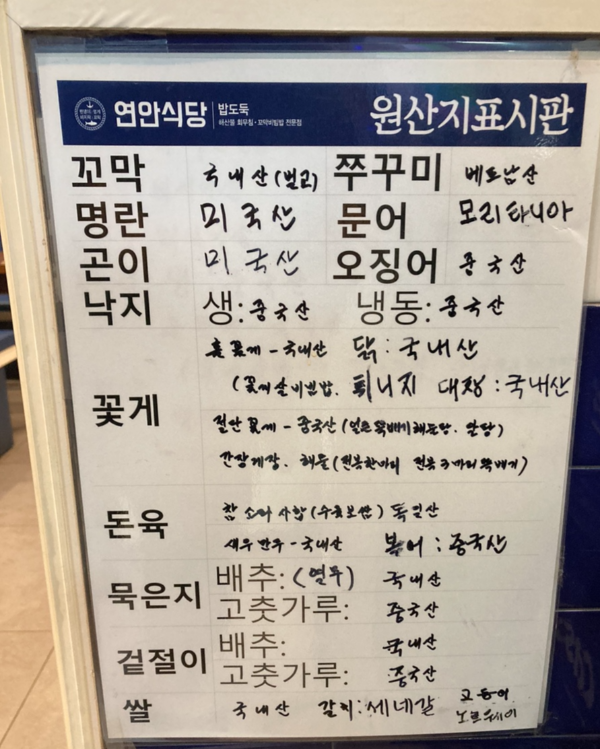 연안식당 밥도둑 원산지표시판
해산물 회무침·꼬막비빔밥 전문점
꼬막 국내산(벌교) 쭈꾸미 베트남산
명란 미국산 문어 모리타니아
곤이 미국산 오징어 중국산
낙지 생: 중국산 냉동: 중국산
꽃게
홀꽃게 - 국내산 닭: 국내산
(꽃게살비빔밥. 대창: 국내산
절단 꽃게 - 중국산 (얼큰뚝배기해둔탕.
간장게장. 해물(전복한마리 전복 3마리뚝배기)
돈육
참 (수육보쌈) 독일산
새우만두 - 국내산 복어: 중국산
묵은지 배추: 국내산
고춧가루: 중국산
겉절이 배추: 국내산
고춧가루: 중국산
쌀 국내산 갈치: 세네갈 고등어
노르웨이